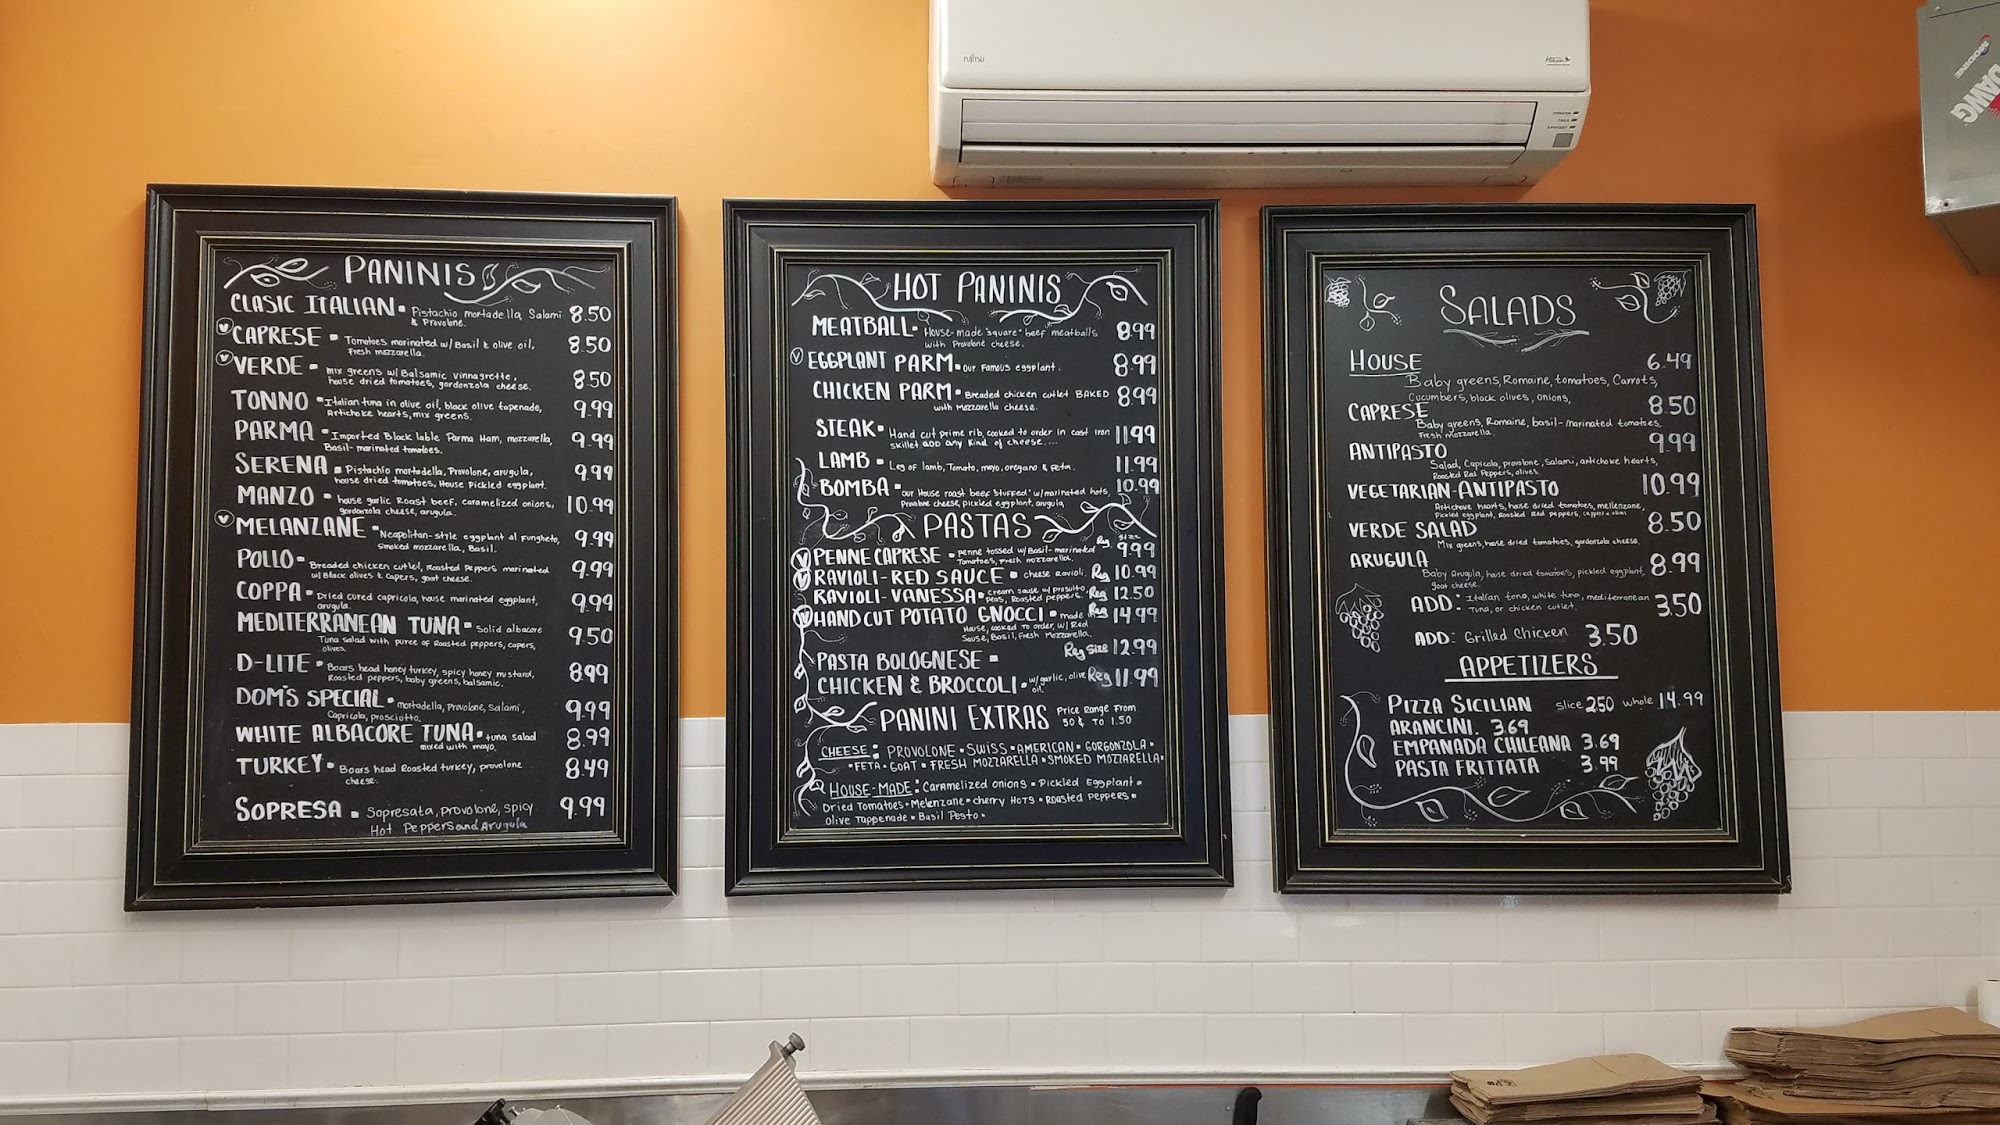 FUJITSU
PANINIS
CLASIC ITALIAN • Pistachio mortadella, Salami 8.50
& Provolone.
V CAPRESE • Tomatoes marinated w/ Basil & olive oil, 8.50
Fresh mozzarella.
V VERDE • mix greens w/ Balsamic vinnagrette, 8.50
house dried tomatoes, gordonzola cheese.
TONNO • Italian tuna in olive oil, black olive tapenade, 9.99
Artichoke hearts, mix greens.
PARMA • Imported Black lable Parma Ham, mozzarella, 9.99
Basil-marinated tomatoes.
SERENA • Pistachio mortadella, Provolone, arugula, 9.99
house dried tomatoes, House Pickled eggplant.
MANZO • house garlic Roast beef, caramelized onions, 10.99
gordonzola cheese, arugula.
V MELANZANE • Neapolitan-style eggplant al Fungheto, 9.99
Smoked mozzarella, Basil.
POLLO • Breaded chicken cutlet, Roasted Peppers marinated 9.99
w/ Black olives & capers, goat cheese.
COPPA • Dried cured capricola, house marinated eggplant, 9.99
arugula.
MEDITERRANEAN TUNA • Solid albacore 9.50
Tuna salad with puree of Roasted peppers, capers,
olives.
D-LITE • Boars head honey turkey, spicy honey mustard, 8.99
Roasted peppers, baby greens, balsamic.
DOM'S SPECIAL • mortadella, Provolone, Salami, 9.99
Capricola, prosciutto.
WHITE ALBACORE TUNA • tuna salad 8.99
mixed with mayo.
TURKEY • Boars head Roasted turkey, provolone 8.49
cheese.
SOPRESA • Sopresata, provolone, spicy 9.99
Hot Peppers and Arugula
HOT PANINIS
MEATBALL • House-made "square" beef meatballs 8.99
with Provolone cheese.
V EGGPLANT PARM • our Famous eggplant. 8.99
CHICKEN PARM • Breaded chicken cutlet BAKED 8.99
with Mozzarella cheese.
STEAK • Hand cut prime rib, cooked to order in cast iron 11.99
skillet ADD any Kind of cheese....
LAMB • Leg of lamb, Tomato, mayo, oregano & Feta. 11.99
BOMBA • our House roast beef "stuffed" w/ marinated hots, 10.99
Provolone cheese, pickled eggplant, arugula
PASTAS
V PENNE CAPRESE • penne tossed w/ Basil-marinated Reg size 9.99
Tomatoes, Fresh mozzarella.
V RAVIOLI-RED SAUCE • cheese Ravioli. Reg 10.99
RAVIOLI-VANESSA • cream sauce w/ prosiutto, Reg 12.50
peas, Roasted peppers.
V HAND CUT POTATO GNOCCI • made in Reg 14.99
House, cooked to order, w/ Red
Sauce, Basil, Fresh Mozzarella.
PASTA BOLOGNESE • Reg Size 12.99
CHICKEN & BROCCOLI • w/ garlic, olive Reg 11.99
oil.
PANINI EXTRAS Price Range From
50¢ TO 1.50
CHEESE: PROVOLONE • SWISS • AMERICAN • GORGONZOLA •
• FETA • GOAT • FRESH MOZZARELLA • SMOKED MOZZARELLA •
HOUSE-MADE: Caramelized onions • Pickled Eggplant •
Dried Tomatoes • Melenzane • cherry HOTS • Roasted Peppers •
Olive Tappenade • Basil Pesto •
SALADS
HOUSE 6.49
Baby greens, Romaine, tomatoes, Carrots,
Cucumbers, black olives, onions,
CAPRESE 8.50
Baby greens, Romaine, basil-marinated tomatoes,
Fresh mozzarella
ANTIPASTO 9.99
Salad, Capicola, provolone, Salami, artichoke hearts,
Roasted Red Peppers, olives.
VEGETARIAN-ANTIPASTO 10.99
Artichoke hearts, house dried tomatoes, mellenzane,
Pickled eggplant, Roasted Red peppers,
VERDE SALAD 8.50
Mix greens, house dried tomatoes, gordonzola cheese.
ARUGULA 8.99
Baby Arugula, house dried tomatoes, pickled eggplant,
goat cheese.
ADD: Italian tona, white tuna, mediterranean 3.50
Tuna, or chicken cutlet.
ADD: Grilled Chicken 3.50
APPETIZERS
PIZZA SICILIAN slice 2.50 whole 14.99
ARANCINI. 3.69
EMPANADA CHILEANA 3.69
PASTA FRITTATA 3.99